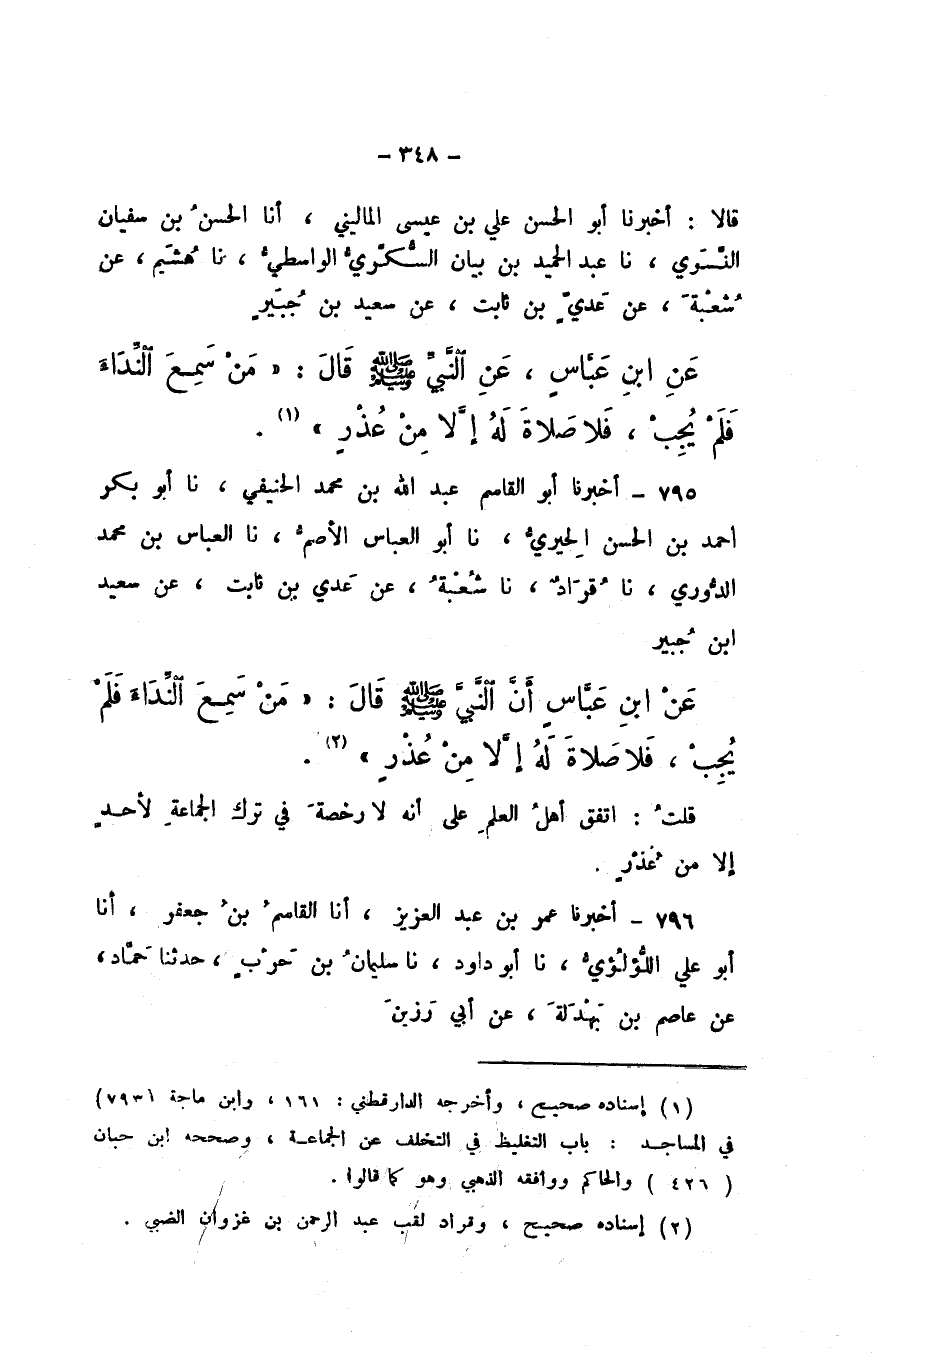 - ٣٤٨ -
قالا : أخبرنا أبو الحسن علي بن عيسى الماليني ، أنا الحسنُ بن سفيان
النَّسَوي ، نا عبد الحميد بن بيان السُّكَّريُّ الواسطيُّ ، نا هُشَيم ، عن
شُعْبةَ ، عن عَديِّ بن ثابت ، عن سعيد بن جُبَيرٍ
عَنِ ابنِ عَبَّاسٍ ، عَنِ ٱلنَّبيِّ ﷺ قَالَ : « مَنْ سَمِعَ ٱلنِّدَاءَ
فَلَمْ يُجِبْ ، فَلا صَلاةَ لَهُ إِلَّا مِنْ عُذْرٍ » (١) .
٧٩٥ – أخبرنا أبو القاسم عبد الله بن محمد الحنيفي ، نا أبو بكر
أحمد بن الحسن الحِيريُّ ، نا أبو العباس الأصمُّ ، نا العباس بن محمد
الدُّوري ، نا قُرَادٌ ، نا شُعْبةُ ، عن عَدي بن ثابت ، عن سعيد
ابن جُبير
عَنْ ابنِ عَبَّاسٍ أَنَّ ٱلنَّبيَّ ﷺ قَالَ : « مَنْ سَمِعَ ٱلنِّدَاءَ فَلَمْ
يُجِبْ ، فَلا صَلاةَ لَهُ إِلَّا مِنْ عُذْرٍ » (٢) .
قلتُ : اتفق أهلُ العلمِ على أنه لا رخصةَ في ترك الجماعةِ لأحدٍ
إلا من عُذْرٍ .
٧٩٦ – أخبرنا عمر بن عبد العزيز ، أنا القاسمُ بنُ جعفر ، أنا
أبو علي اللُّؤلُؤيُّ ، نا أبو داود ، نا سليمانُ بن حَرْبٍ ، حدثنا حَمَّاد ،
عن عاصم بن بَهْدَلَةَ ، عن أبي رَزينَ
(١) إسناده صحيح ، وأخرجه الدارقطني : ١٦١ ، وابن ماجة (٧٩٣)
في المساجد : باب التغليظ في التخلف عن الجماعة ، وصححه ابن حبان
( ٤٢٦ ) والحاكم ووافقه الذهبي وهو كما قالوا .
(٢) إسناده صحيح ، وقراد لقب عبد الرحمن بن غزوان الضبي .